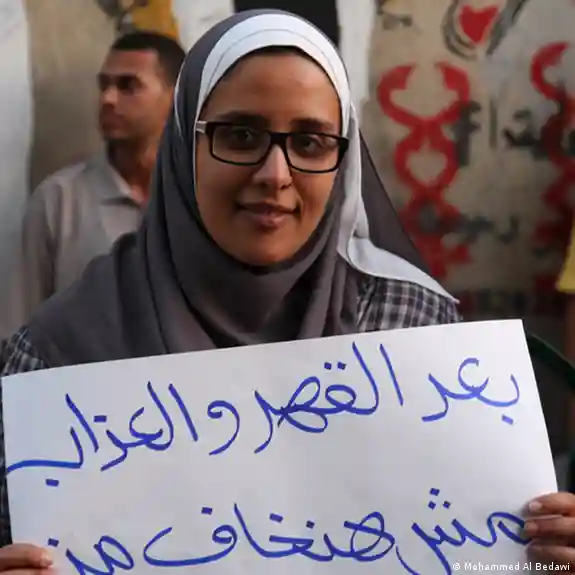 بعد القهر والعذاب
مش هنخاف من
© Mohammed Al Bedawi